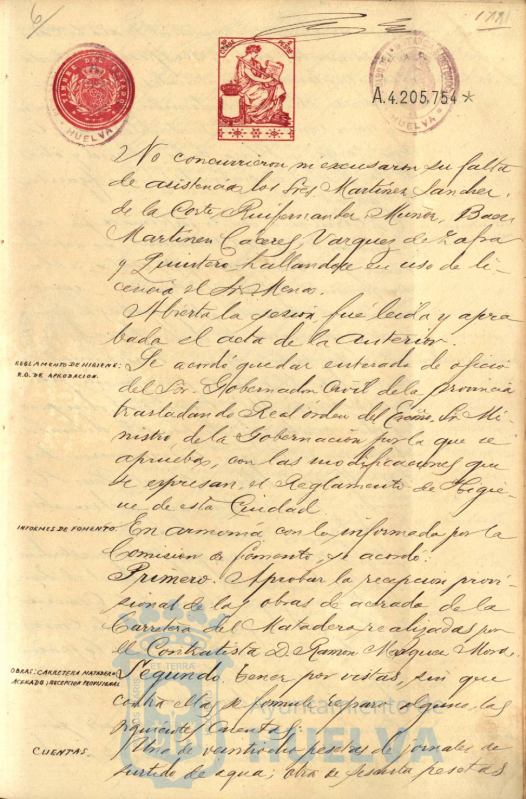 TIMBRE DEL ESTADO
HUELVA
A.4.205,754*
HUELVA
No concurrieron ni excusaron su falta
de asistencia los Sres. Martinez Sanchez,
de la Corte, Ruifernandez, Muñoz, Baez
Martinez Caceres, Vazquez de Zafra
y Quintero hallandose en uso de li-
cencia el Sr.
Abierta la sesión fué leida y apro
bada el acta de la anterior.
REGLAMENTO DE HIGIENE:
R.O. DE APROBACION.
Se acordó quedar enterado de oficio
del Sr. Gobernador Civil de la provincia
trasladando Real orden del Excmo. Sr. Mi-
nistro de la Gobernación por la que se
aprueba, con las modificaciones que
se expresan, el Reglamento de Higie-
ne de esta Ciudad
INFORMES DE FOMENTO.
En armonía con lo informado por la
Comisión de Fomento, se acordó:
Primero. Aprobar la recepcion provi-
sional de las obras de acerado de la
Carretera del Matadero realizadas por
el Contratista D. Ramon Mora.
OBRAS: CARRETERA MATADERO
ACERADO; RECEPCION PROVISIONAL
Segundo. Tener por vistas, sin que
contra ellas se formule reparo alguno, las
siguientes cuentas:
CUENTAS.
Una de veintiocho pesetas de jornales de
surtido de agua; otra de sesenta pesetas
Ayuntamiento de
HUELVA